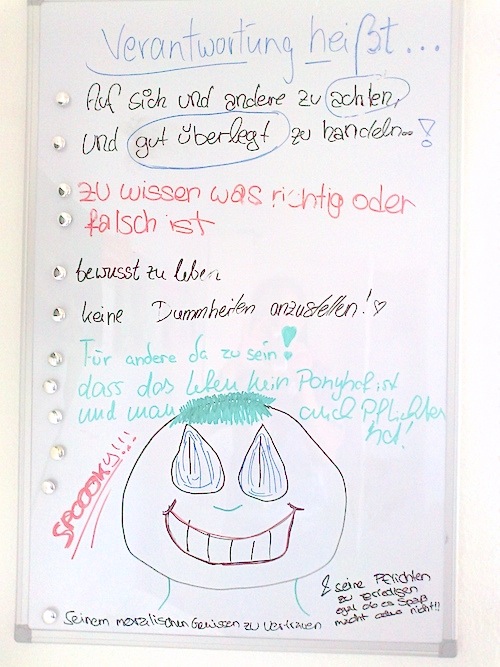 Verantwortung heißt...
Auf sich und andere zu achten,
und gut überlegt zu handeln...!
zu wissen was richtig oder
falsch ist
bewusst zu leben
keine Dummheiten anzustellen!♡
Für andere da zu sein!
dass das Leben kein Ponyhof ist
und man auch Pflichten
hat!
SPOOOKY!!!
& seine Pflichten
zu erledigen
egal ob es Spaß
macht oder nicht!!!
Seinem moralischen Gewissen zu vertrauen